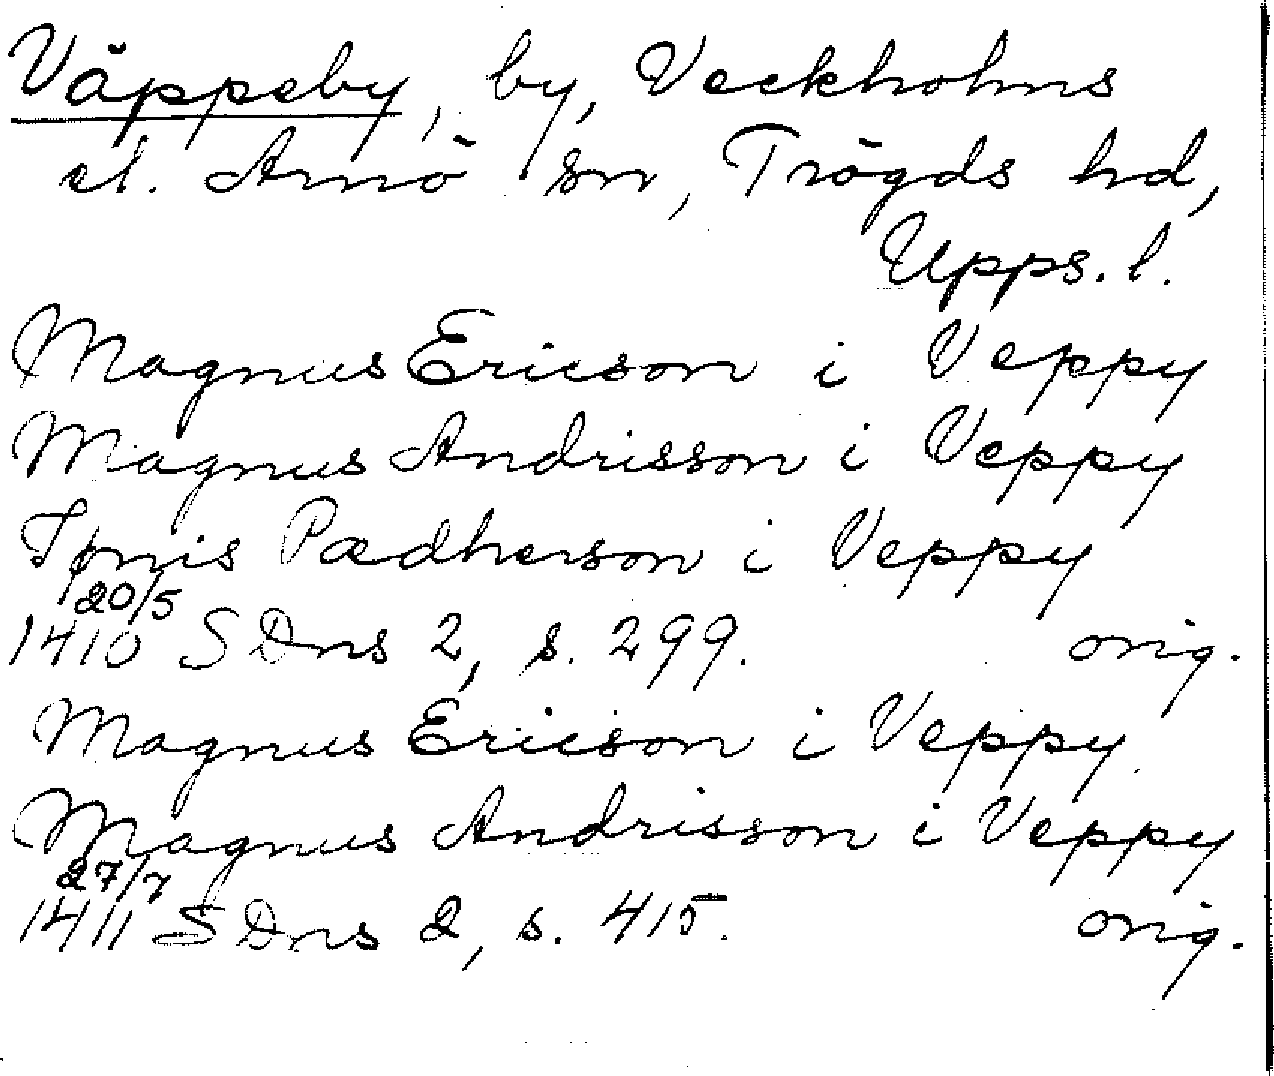 Väppeby, by, Veckholms
el. Arnö sn, Trögds hd,
Upps. l.
Magnus Ericson i Veppy
Magnus Andrisson i Veppy
Tønis Pædherson i Veppy
20/5
1410 SDns 2, s. 299. orig.
Magnus Ericson i Veppy
Magnus Andrisson i Veppy
27/7
1411 SDns 2, s. 415. orig.